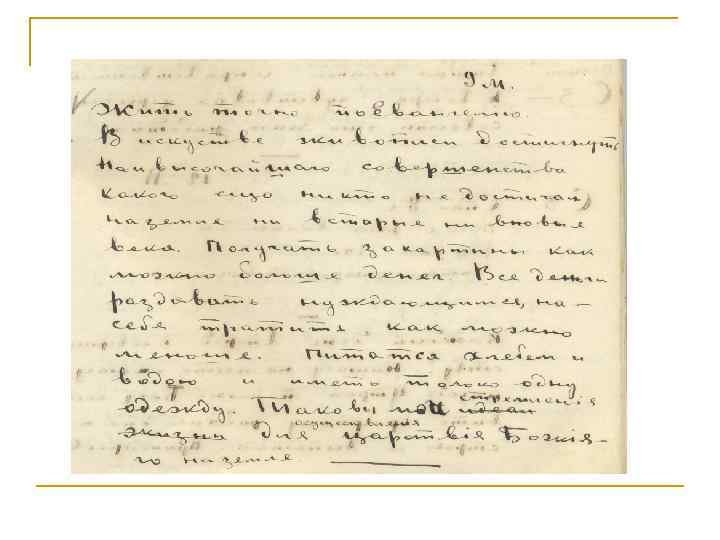 9 м.
Жить точно поЕвангелию.
В искустве живописи достигнуть
Наивысочайшаго совершенства
какого еще никто не достигал
наземле ни встарые ни вновые
века. Получать закартины как
можно больше денег. Все деньги
раздавать нуждающимся, на-
себе тратить как можно
меньше. Питатся хлебом и
водою и иметь только одну
стремления
одежду. Таковы мои идеал
осуществления
жизни для царствія Божія-
го наземле.